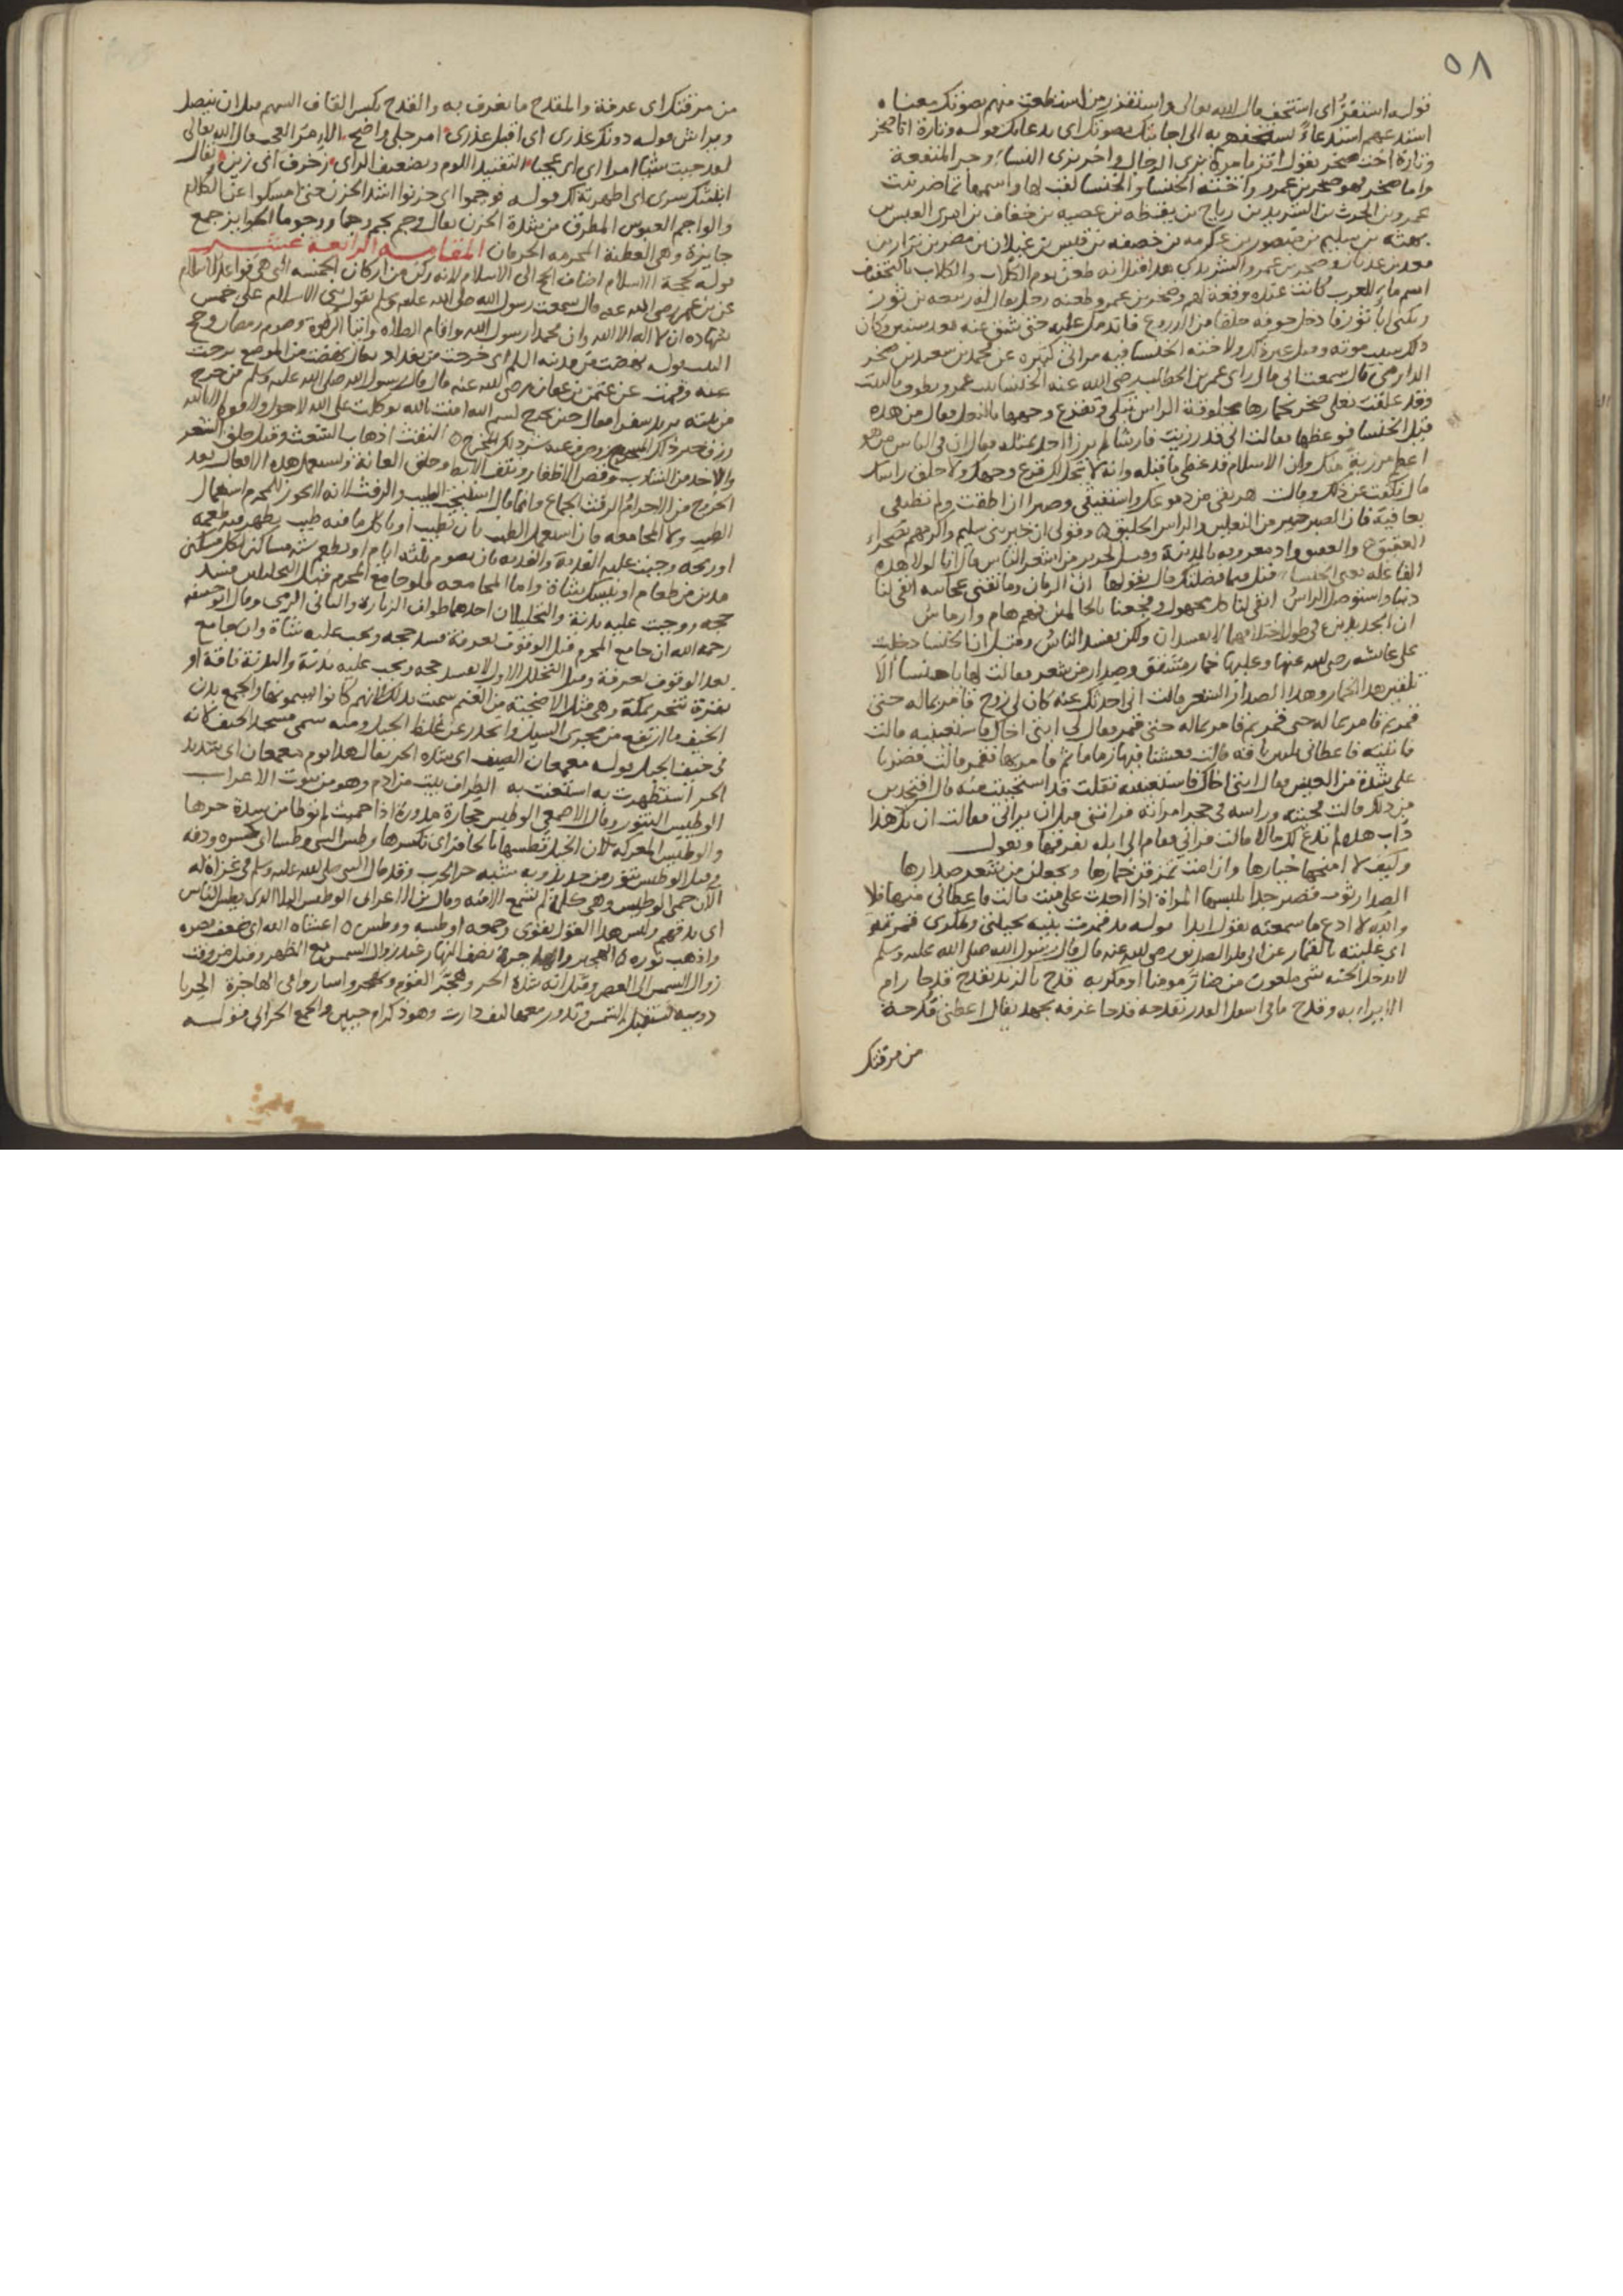 ٥٨
قوله استفزّ أي استخف قال الله تعالى واستفزز من استطعت منهم بصوتك معناه
استدعهم استدعاء تستخفهم به الى اجابتك بصوتك اي بدعائك قوله وتارة انا صخر
وتارة أخت صخر يقول اتزيا مرة بزي الرجال واخرى بزي النساء وجر المنفعة
واما صخر فهو صخر بن عمرو واخته الخنسا والخنسا لقب لها واسمها تماضر بنت
عمرو بن الحرث بن الشريد بن رياح بن يقظه بن عصيه بن خفاف بن امرئ القيس بن
بهثه بن سليم بن منصور بن عكرمه بن خصفه بن قيس بن غيلان بن مضر بن نزار بن
معد بن عدنان وصخر بن عمرو الشريدي هذا قيل انه طعن يوم الكلاب والكلاب بالتخفيف
اسم ماء للعرب كانت عنده وقعة لهم وصخر بن عمرو طعنه رجل يقال له ربيعه بن ثور
ويكنى ابا ثور فادخل جوفه حلقا من الدروع فاندمل عليه حتى شق عنه بعد سنين وكان
ذلك سبب موته وقيل غير ذلك ولاخته الخنسا فيه مراثي كثيره عن محمد بن سعيد بن صخر
الدارمي قال سمعت ابي قال راى عمر بن الخطاب رضي الله عنه الخنسا بنت عمرو تطوف بالبيت
وقد علقت نعلي صخر بخمارها محلوقة الراس تبكي وتفزع وجهها بالنعل فقال من هذه
قيل الخنسا فوعظها فقالت اني قد رزيت فارسا لم يرزا احد بمثله فقال ان في الناس من هو
اعظم مرزية منك وان الاسلام قد غطى ما قبله وانه لا يحل لك قرع وجهك ولا حلق راسك
قال فكفت عن ذلك وقالت هريقي من دموعك واستفيقي وصبرا ان اطقت ولم تطيقي
بعاقبة فان الصبر خير من النعلين والراس الحليق ٥ وقولي ان خير بني سليم واكرمهم بصحراء
العقيق والعقيق واد معروف بالمدينة وقيل لجرير من اشعر الناس قال انا لولا هذه
الفاعله يعني الخنسا قيل فبما فضلتك قال بقولها ان الزمان وما تفنى عجائبه ابقى لنا
ذنبا واستوصل الراس ابقى لنا كل مجهول وفجعنا بالحالمين فهم هام وارماس
ان الجديدين في طول اختلافهما لا يفسدان ولكن يفسد الناس وقيل ان الخنسا دخلت
على عائشه رضي الله عنها وعليها خمار متشقق وصدار من شعر فقالت لها يا خنسا الا
تلقين هذا الخمار وهذا الصدار الشعر قالت اني احدثك عنه كان لي زوج قامر بماله حتى
قمر ثم قامر بماله حتى قمر ثم قامر بماله حتى قمر فقال لي ايتي اخاك فاستعينيه قالت
فاتيته فاعطاني ناقة قالت فعشنا فيها زمانا ثم قامر بها فقمر قالت فصرنا
على شدة من العيش فقال ايتي اخاك فاستعينيه فقلت قد استحييت منه قال افتجدين
من ذلك قالت فجيته وراسه في حجر امراته فراتني قبل ان يراني فقالت ان يك هذا
داب هذه لم تدع لك مالا قالت فراني فقام الى ابله يفرقها ويقول
وكيف لا امنحها خيارها وان امت تمزقن خمارها وجعلن من شعر صدارها
الصدار ثوب قصير جدا تلبسها المراة اذا احدث على ميت قالت فاعطاني منها فلا
والله لا ادع ما سمعته يقول ابدا قوله قد قمرت بنيه بحيلتي ومكري قمرته
اي غلبته بالقمار عن ابي بكر الصديق رضي الله عنه قال قال رسول الله صلى الله عليه وسلم
لا يدخل الجنه شي ملعون من ضار مومنا او مكر به قدح بالزند يقدح قدحا رام
الايراء به وقدح ما في اسفل القدر يقدحه قدحا غرفه بجهد يقال اعطني قدحة
من مرقتك
من مرقتك اي غرفة والمقدح ما يغرف به والقدح بكسر القاف السهم قبل ان ينصل
ويراش قوله دونك عذري اي اقبل عذري امر جلي واضح الامر العجب قال الله تعالى
لقد جيت شيا امرا اي عجبا التفنيد اللوم وتضعيف الراي زخرف اي زين يقال
ابثثتك سري اي اظهرته لك قوله فوجموا اي حزنوا اشد الحزن حتى امسكوا عن الكلام
والواجم العبوس المطرق من شدة الحزن يقال وجم يجم وجما ووجوما الجوايز جمع
جايزة وهي العطية المحرمه الحرمان المقامه الرابعة عشر
قوله حجة الاسلام اضاف الحج الى الاسلام لانه ركن من اركان الخمسه التي هي قواعد الاسلام
عن بن عمر رضي الله عنه قال سمعت رسول الله صلى الله عليه وسلم يقول بني الاسلام على خمس
شهاده ان لا اله الا الله وان محمدا رسول الله واقام الصلاه وايتا الزكوة وصوم رمضان وحج
البيت قوله نهضت من مدينة السلم اي خرجت من بغداد يقال نهضت من الموضع برحت
عنه وقمت عن عثمن بن عفان رضي الله عنه قال قال رسول الله صلى الله عليه وسلم من خرج
من بيته يريد سفرا فقال حين يخرج بسم الله امنت بالله توكلت على الله لا حول ولا قوة الا بالله
رزق خير ذلك المخرج وصرف عنه شر ذلك المخرج ٥ التفث اذهاب الشعث وقيل حلق الشعر
والاخذ من الشارب وقص الاظفار ونتف الابط وحلق العانة وتستعمل هذه الافعال بعد
الخروج من الاحرام الرفث الجماع وانما قال استبحت الطيب والرفث لانه لا يجوز للمحرم استعمال
الطيب ولا المجامعه فان استعمل الطيب بان تطيب او باكل ما فيه طيب يظهر فيه طعمه
او ريحه وجبت عليه الفدية والفديه بان يصوم ثلثه ايام او يطعم سته مساكين لكل مسكين
مدين من طعام او ينسك بشاة واما المجامعه فلو جامع المحرم قبل التحللين فسد
حجه ووجبت عليه بدنة والتحللان احدهما طواف الزيارة والثاني الرمي وقال ابو حنيفه
رحمه الله ان جامع المحرم قبل الوقوف بعرفة فسد حجه ويجب عليه شاة وان جامع
بعد الوقوف بعرفة وقبل التحلل الاول لا يفسد حجه ويجب عليه بدنة والبدنة ناقة او
بقرة تنحر بمكة وهي مثل الاضحية من الغنم سميت بذلك لانهم كانوا يسمنونها والجمع بدن
الخيف ما ارتفع من مجرى السيل وانحدر عن غلظ الجبل ومنه سمي مسجد الخيف كانه
في خيف الجبل قوله معمعان الصيف اي شده الحر يقال هذا يوم معمعان اي شديد
الحر استظهرت به استعنت به الطراف بيت من ادم وهو من بيوت الاعراب
الوطيس التنور وقال الاصمعي الوطيس حجارة مدورة اذا حميت لم توطا من شدة حرها
والوطيس المعركه لان الخيل تطسها بالحوافر اي تكسرها وطس الشي وطسا اي كسره ودقه
وقيل الوطيس تنور من حديد وبه شبه حر الحرب وقد قال النبي صلى الله عليه وسلم في غزاة له
الآن حمي الوطيس وهي كلمة لم تسمع الا منه وقال بن الاعرابي الوطيس البلا الذي يطس الناس
اي يدقهم وليس هذا القول بقوى وجمعه اوطسه ووطس ٥ اعشاه الله اي ضعف بصره
واذهب نوره ٥ الهجير والهاجرة نصف النهار عند زوال الشمس مع الظهر وقيل من وقت
زوال الشمس الى العصر وقيل انه شدة الحر وهجّر القوم وتهجروا ساروا في الهاجرة الحربا
دويبة تستقبل الشمس وتدور معها كيف دارت وهو ذكر ام حبين والجمع الحرابي قوله